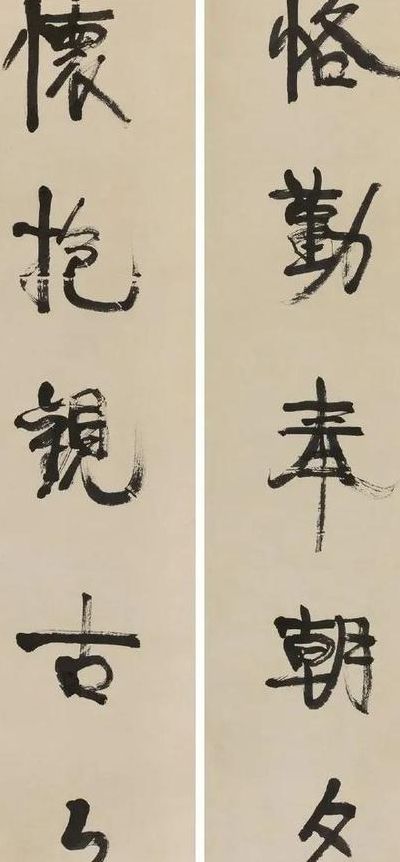 恪勤奉朝夕
懷抱觀古今